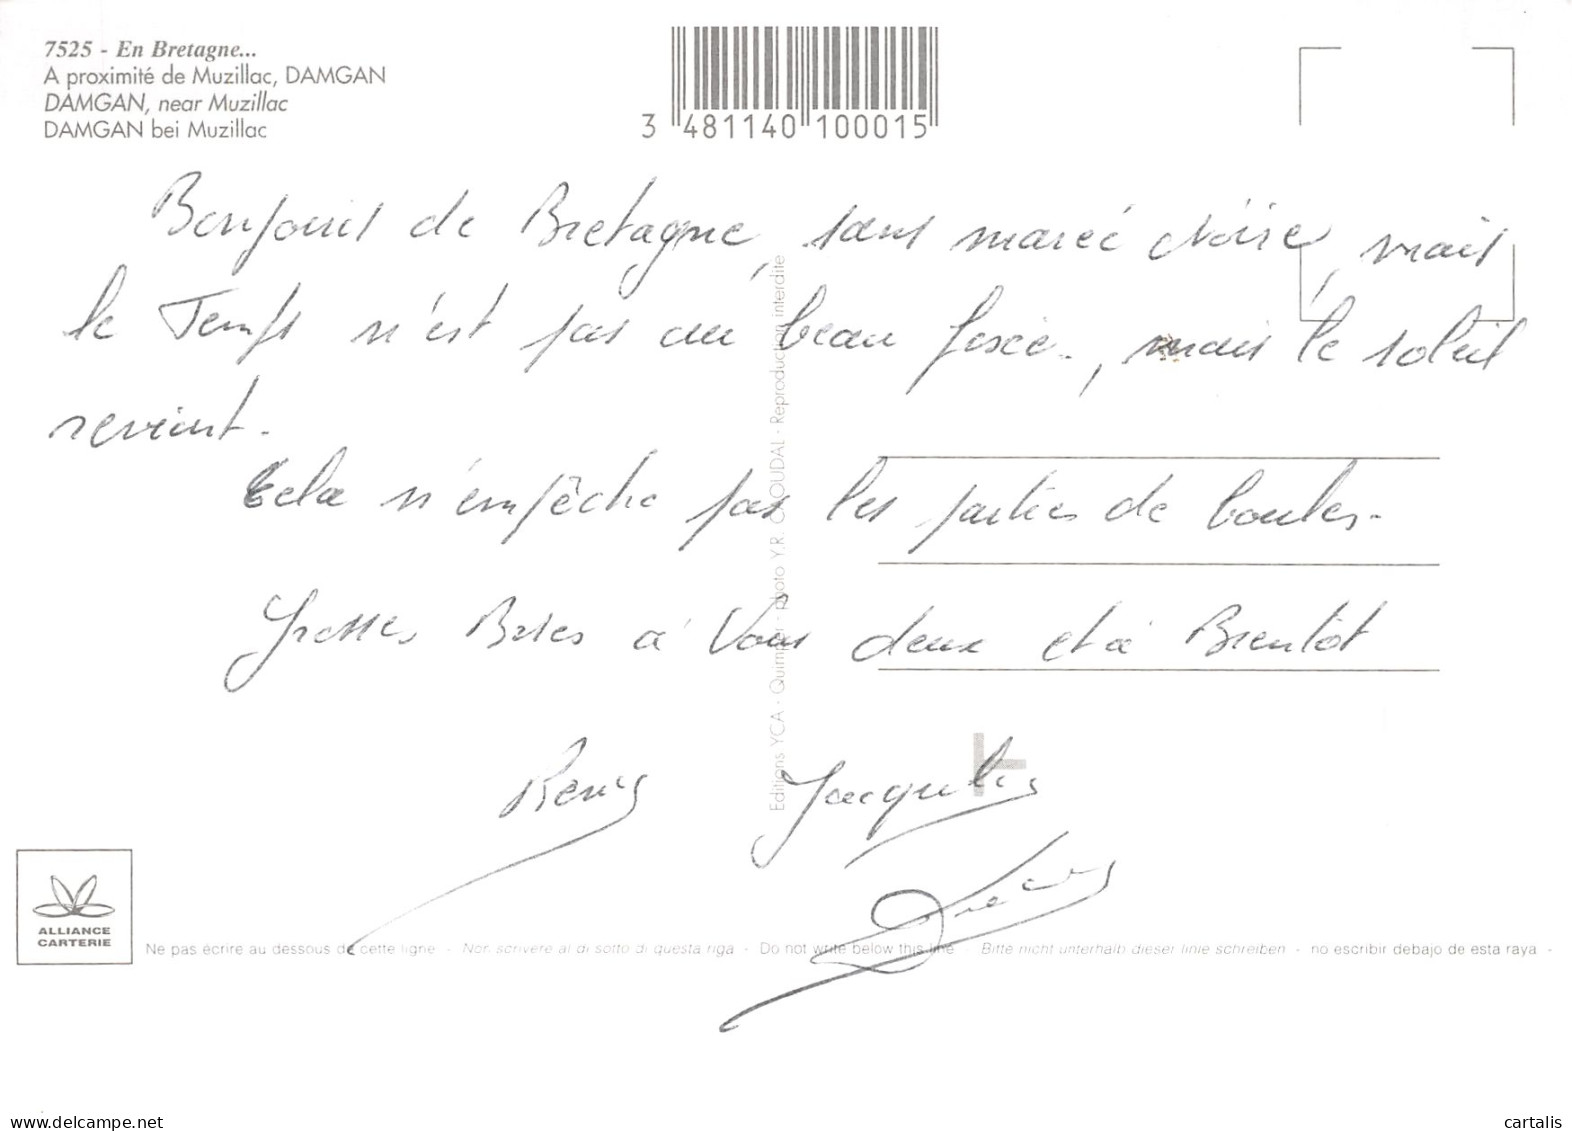 7525 - En Bretagne...
A proximité de Muzillac, DAMGAN
DAMGAN, near Muzillac
DAMGAN bei Muzillac
3 481140 100015
Bonjours de Bretagne, sans mareé Noire, mais
le Temps n'est pas au beau fixe., mais le soleil
revient.
Cela n'empêche pas les parties de boules.
Grosses Bises à Vous deux et à Bientôt
Jacqueline
Editions YCA - Quimper - photo Y.R. CAOUDAL - Reproduction interdite
ALLIANCE
CARTERIE
Ne pas écrire au dessous de cette ligne - Non scrivere al di sotto di questa riga - Do not write below this line - Bitte nicht unterhalb dieser linie schreiben - no escribir debajo de esta raya -
www.delcampe.net
cartalis